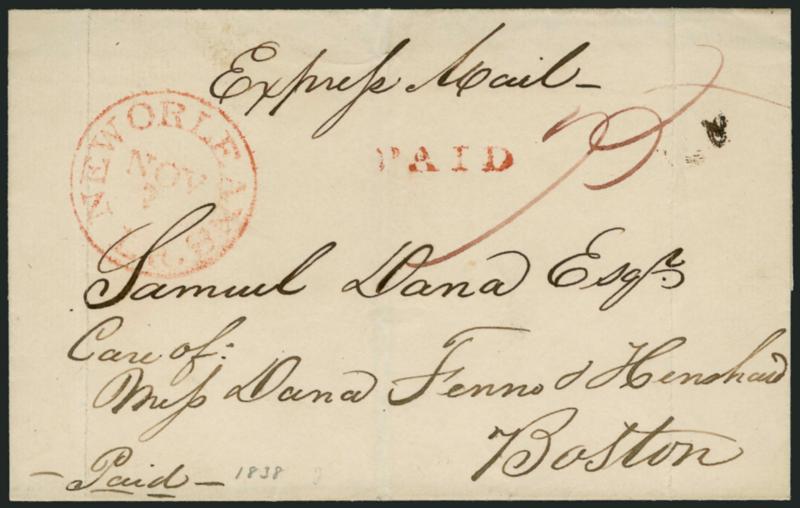 Express Mail -
NEW ORLEANS
NOV
PAID
Samuel Dana Esqr.
Care of:
Mess Dana Fenno & Henshaw
Boston
- Paid - 1838